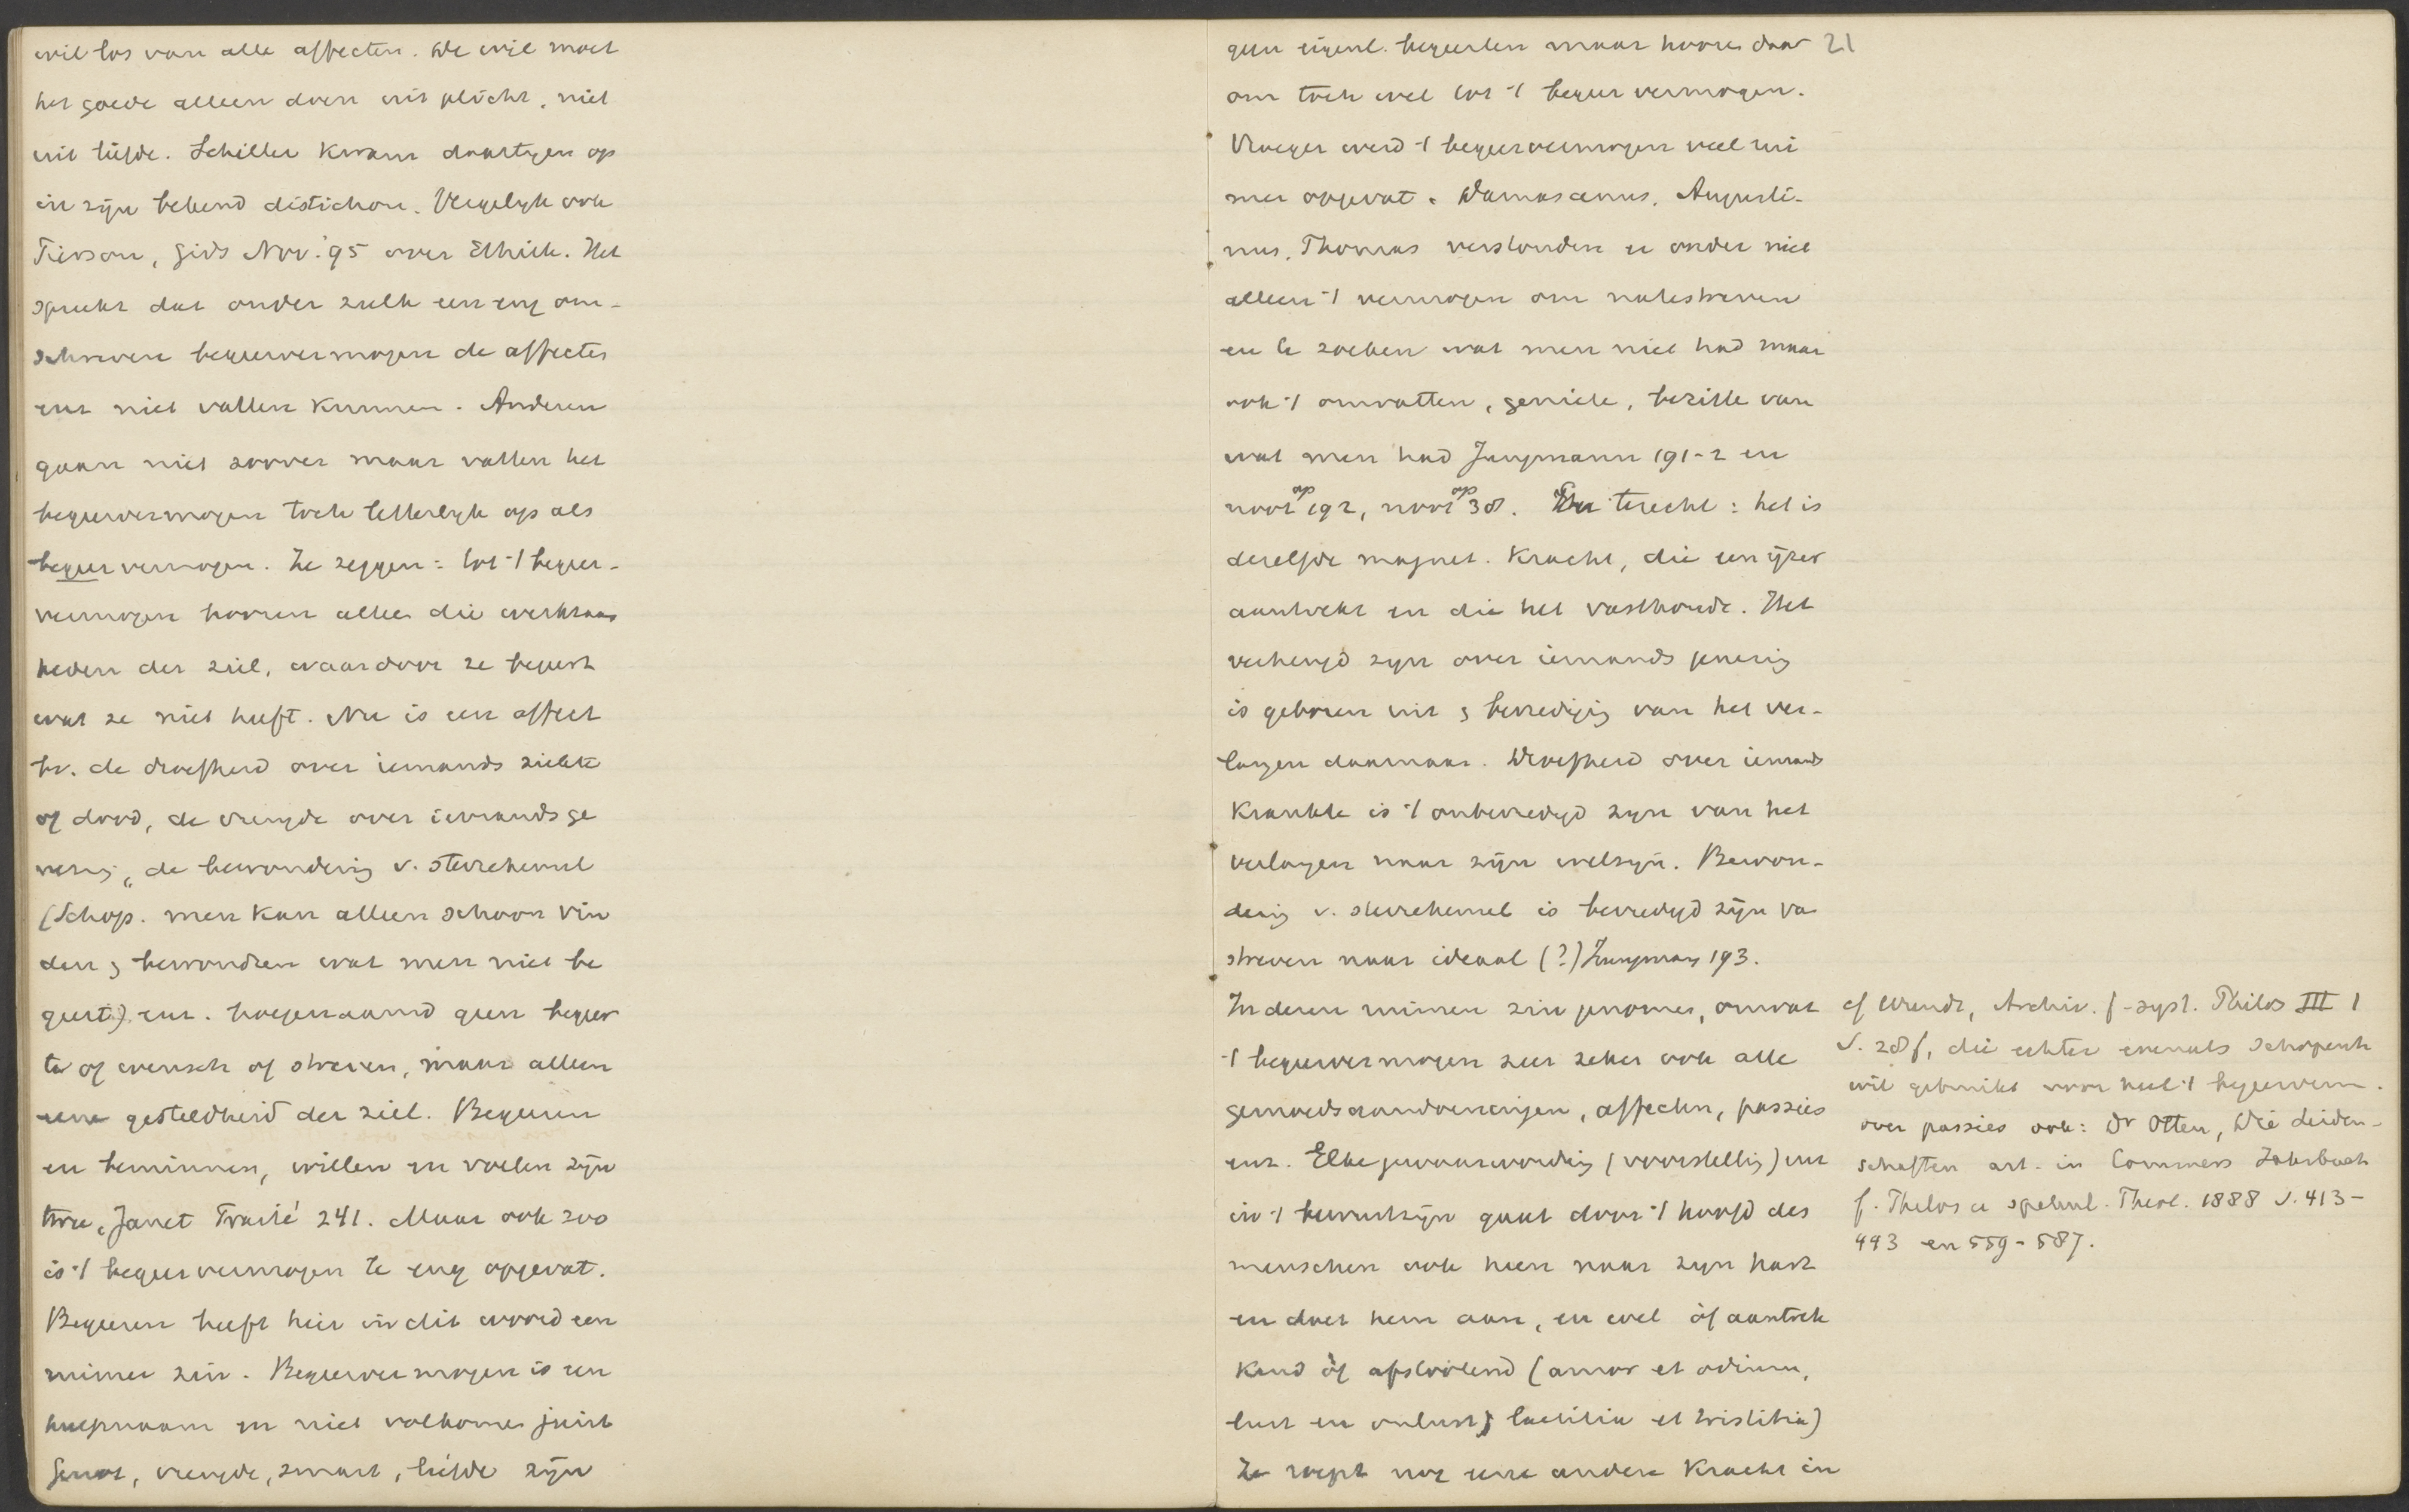 wil los van alle affecten. De wil moet
het goede alleen doen uit plicht, niet
uit liefde. Schiller kwam daartegen op
in zijn bekend distichon. Vergelijk ook
Pierson, Gids Nov. '95 over Ethiek. Het
spreekt dat onder zulk een eng om-
schreven begeervermogen de affecten
enz niet vallen kunnen. Anderen
gaan niet zoover maar vatten het
begeervermogen toch letterlijk op als
begeervermogen. Ze zeggen: tot 't begeer-
vermogen hooren alle die werkzaam
heden der ziel, waardoor ze begeert
wat ze niet heeft. Nu is een affect
bv. de droefheid over iemands ziekte
of dood, de vreugde over iemands ge
nezing, de bewondering v. sterrehemel
(Schop. men kan alleen schoon vin
den & bewondren wat men niet be
geert), enz. hoegenaamd geen begeer
te of wensch of streven, maar alleen
eene gesteldheid der ziel. Begeeren
en beminnen, willen en voelen zijn
twee, Janet Traité 241. Maar ook zoo
is 't begeervermogen te eng opgevat.
Begeeren heeft hier in dit woord een
ruimer zin. Begeervermogen is een
hulpnaam en niet volkomen juist
Genot, vreugde, smart, liefde zijn
geen eigenl. begeerten maar hooren daar 21
om toch wel tot 't begeervermogen.
Vroeger werd 't begeervermogen veel rui
mer opgevat. Damascenus, Augusti-
nus, Thomas verstonden er onder niet
alleen 't vermogen om natestreven
en te zoeken wat men niet had maar
ook 't omvatten, geniete, bezitte van
wat men had Jungmann 191-2 en
noot op 192, noot op 38. En terecht: het is
dezelfde magnet. kracht, die een ijzer
aantrekt en die het vasthoudt. Het
verheugd zijn over iemands genezing
is geboren uit & bevrediging van het ver-
langen daarnaar. Droefheid over iemands
krankte is 't onbevredigd zijn van het
verlangen naar zijn welzijn. Bewon-
dering v. sterrehemel is bevredigd zijn van
streven naar ideaal (?) Jungmann 193.
In dezen ruimen zin genomen, omvat
't begeervermogen zeer zeker ook alle
gemoedsaandoeningen, affecten, passies
enz. Elke gewaarwording (voorstelling) enz
in 't bewustzijn gaat door 't hoofd des
menschen ook heen naar zijn hart
en doet hem aan, en wel òf aantrek
kend òf afstootend (amor et odium,
lust en onlust, laetitia et tristitia)
Ze roept nog eene andere kracht in
cf Wundt, Archiv. f. syst. Philos III 1
S. 28 f, die echter evenals Schopenh
wil gebruikt voor heel 't begeerverm.
over passies ook: Dr Otten, Die Leiden-
schaften art. in Commers Jahrbuch
f. Philos u spekul. Theol. 1888 S. 413-
443 en 559-587.